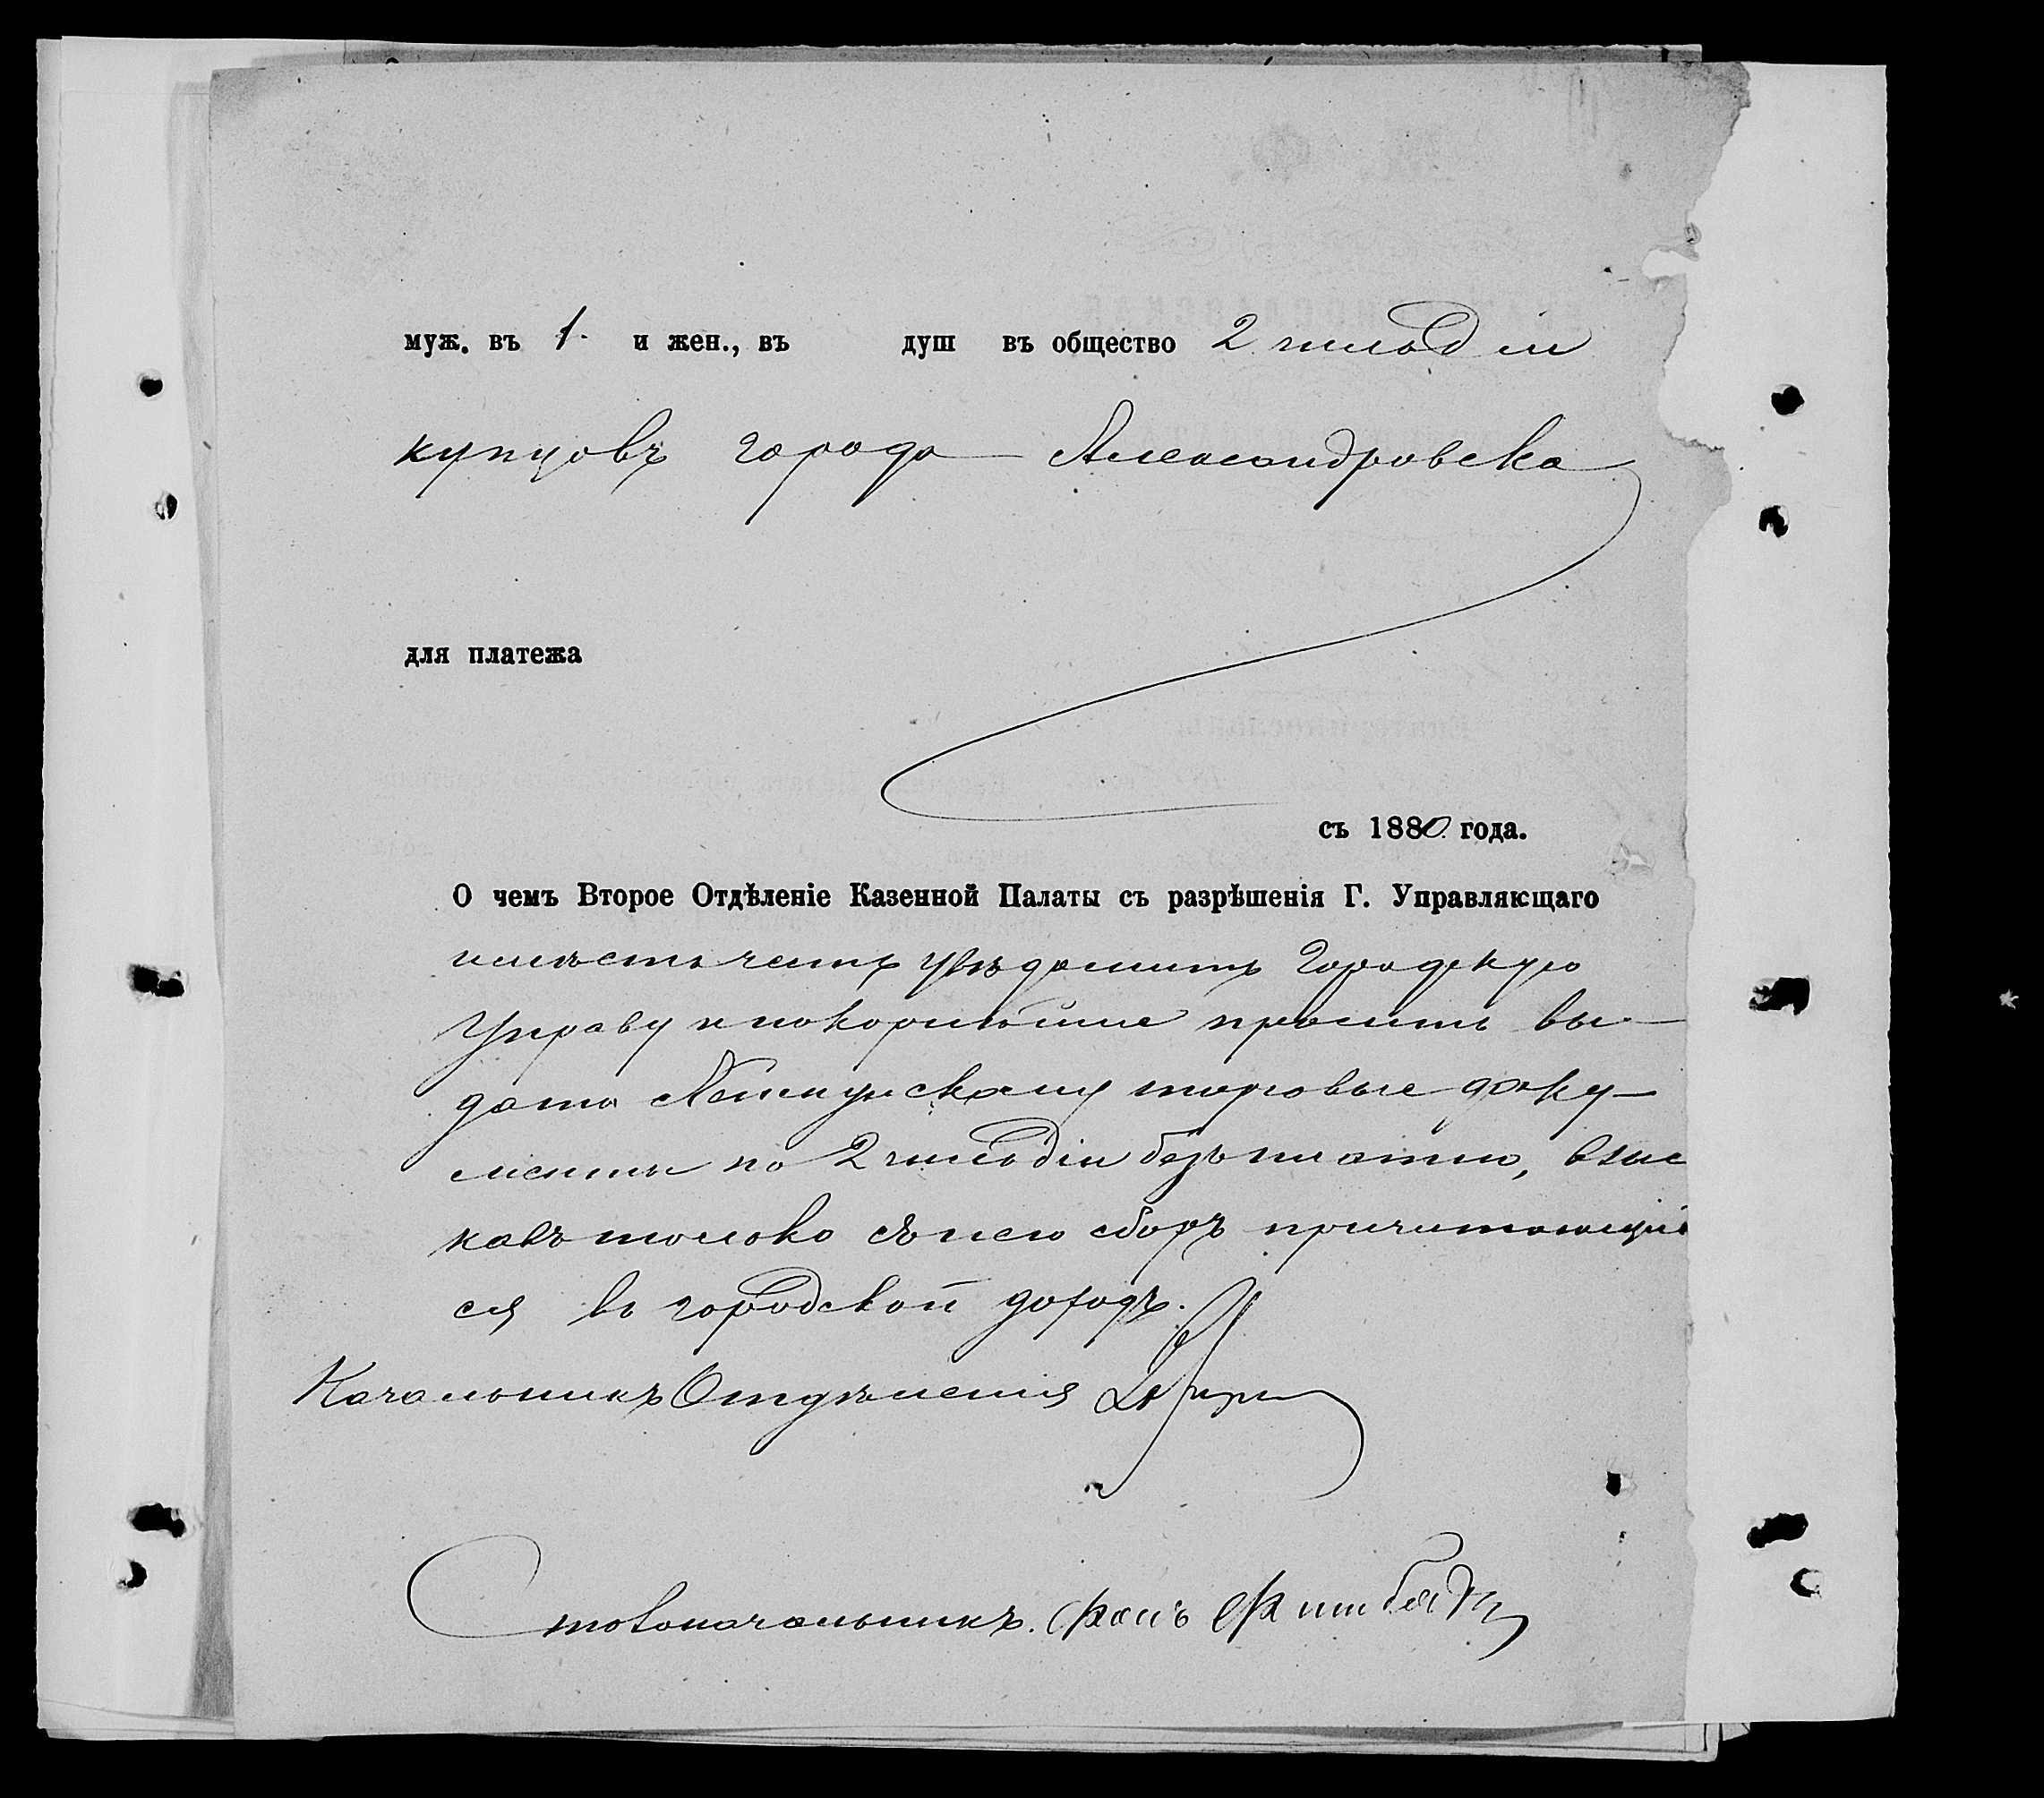 муж. въ 1. и жен., въ душ въ общество 2 гильдіи
купцовъ города Александровска
для платежа
съ 1880 года.
О чемъ Второе Отдѣленіе Казенной Палаты съ разрѣшенія Г. Управляющаго
имѣетъ честь увѣдомить Городскую
Управу и покорнѣйше просить вы-
дать торговые доку-
менты по 2 гильдіи безплатно, взыс
кавъ только съ нею сборъ причитающій
ся въ городской доходъ.
Начальникъ Отдѣленія
Столоначальникъ. Фонъ